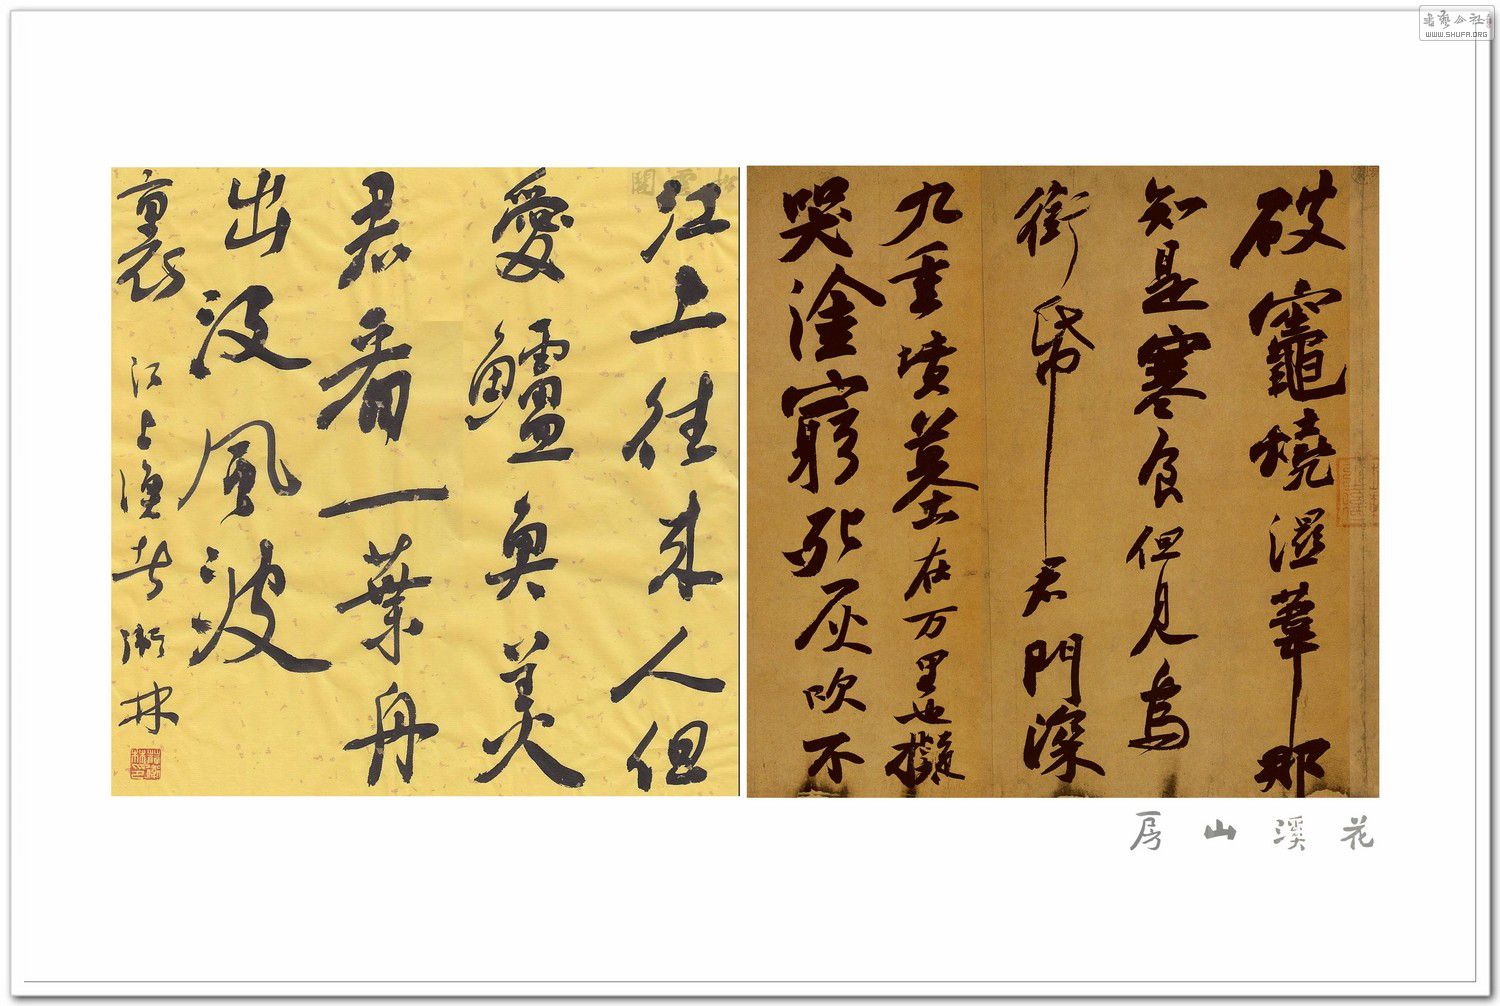 書藝公社
WWW.SHUFA.ORG
破竈燒濕葦那
知是寒食但見烏
銜帋君門深
九重墳墓在万里也擬
哭塗窮死灰吹不
江上往来人但
愛鱸魚美
君看一葉舟
出没風波
裏 江上渔者 林
花溪山房